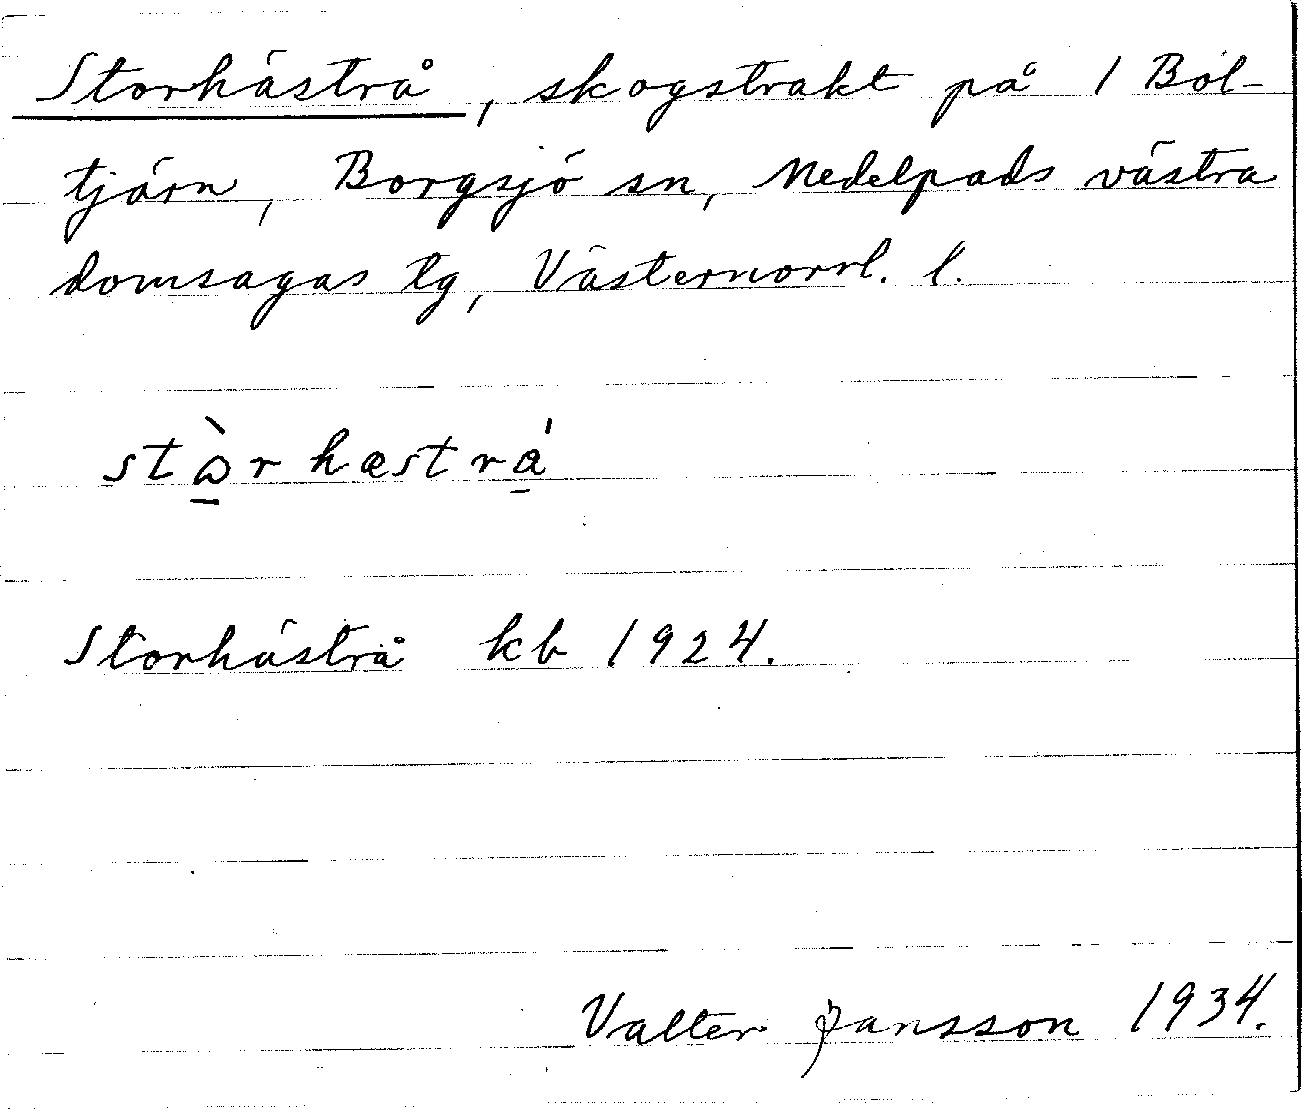 Storhästrå, skogstrakt på 1 Böl-
tjärn, Borgsjö sn, Medelpads västra
domsagas tg, Västernorrl. l.
stɷ̀rhæstrá
Storhästrå kb 1924.
Valter Jansson 1934.